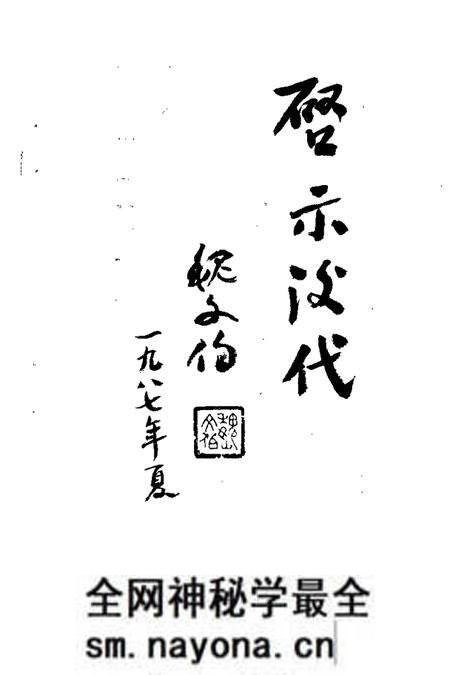 启示後代
魏文伯
一九八七年夏
魏文伯
全网神秘学最全
sm.nayona.cn